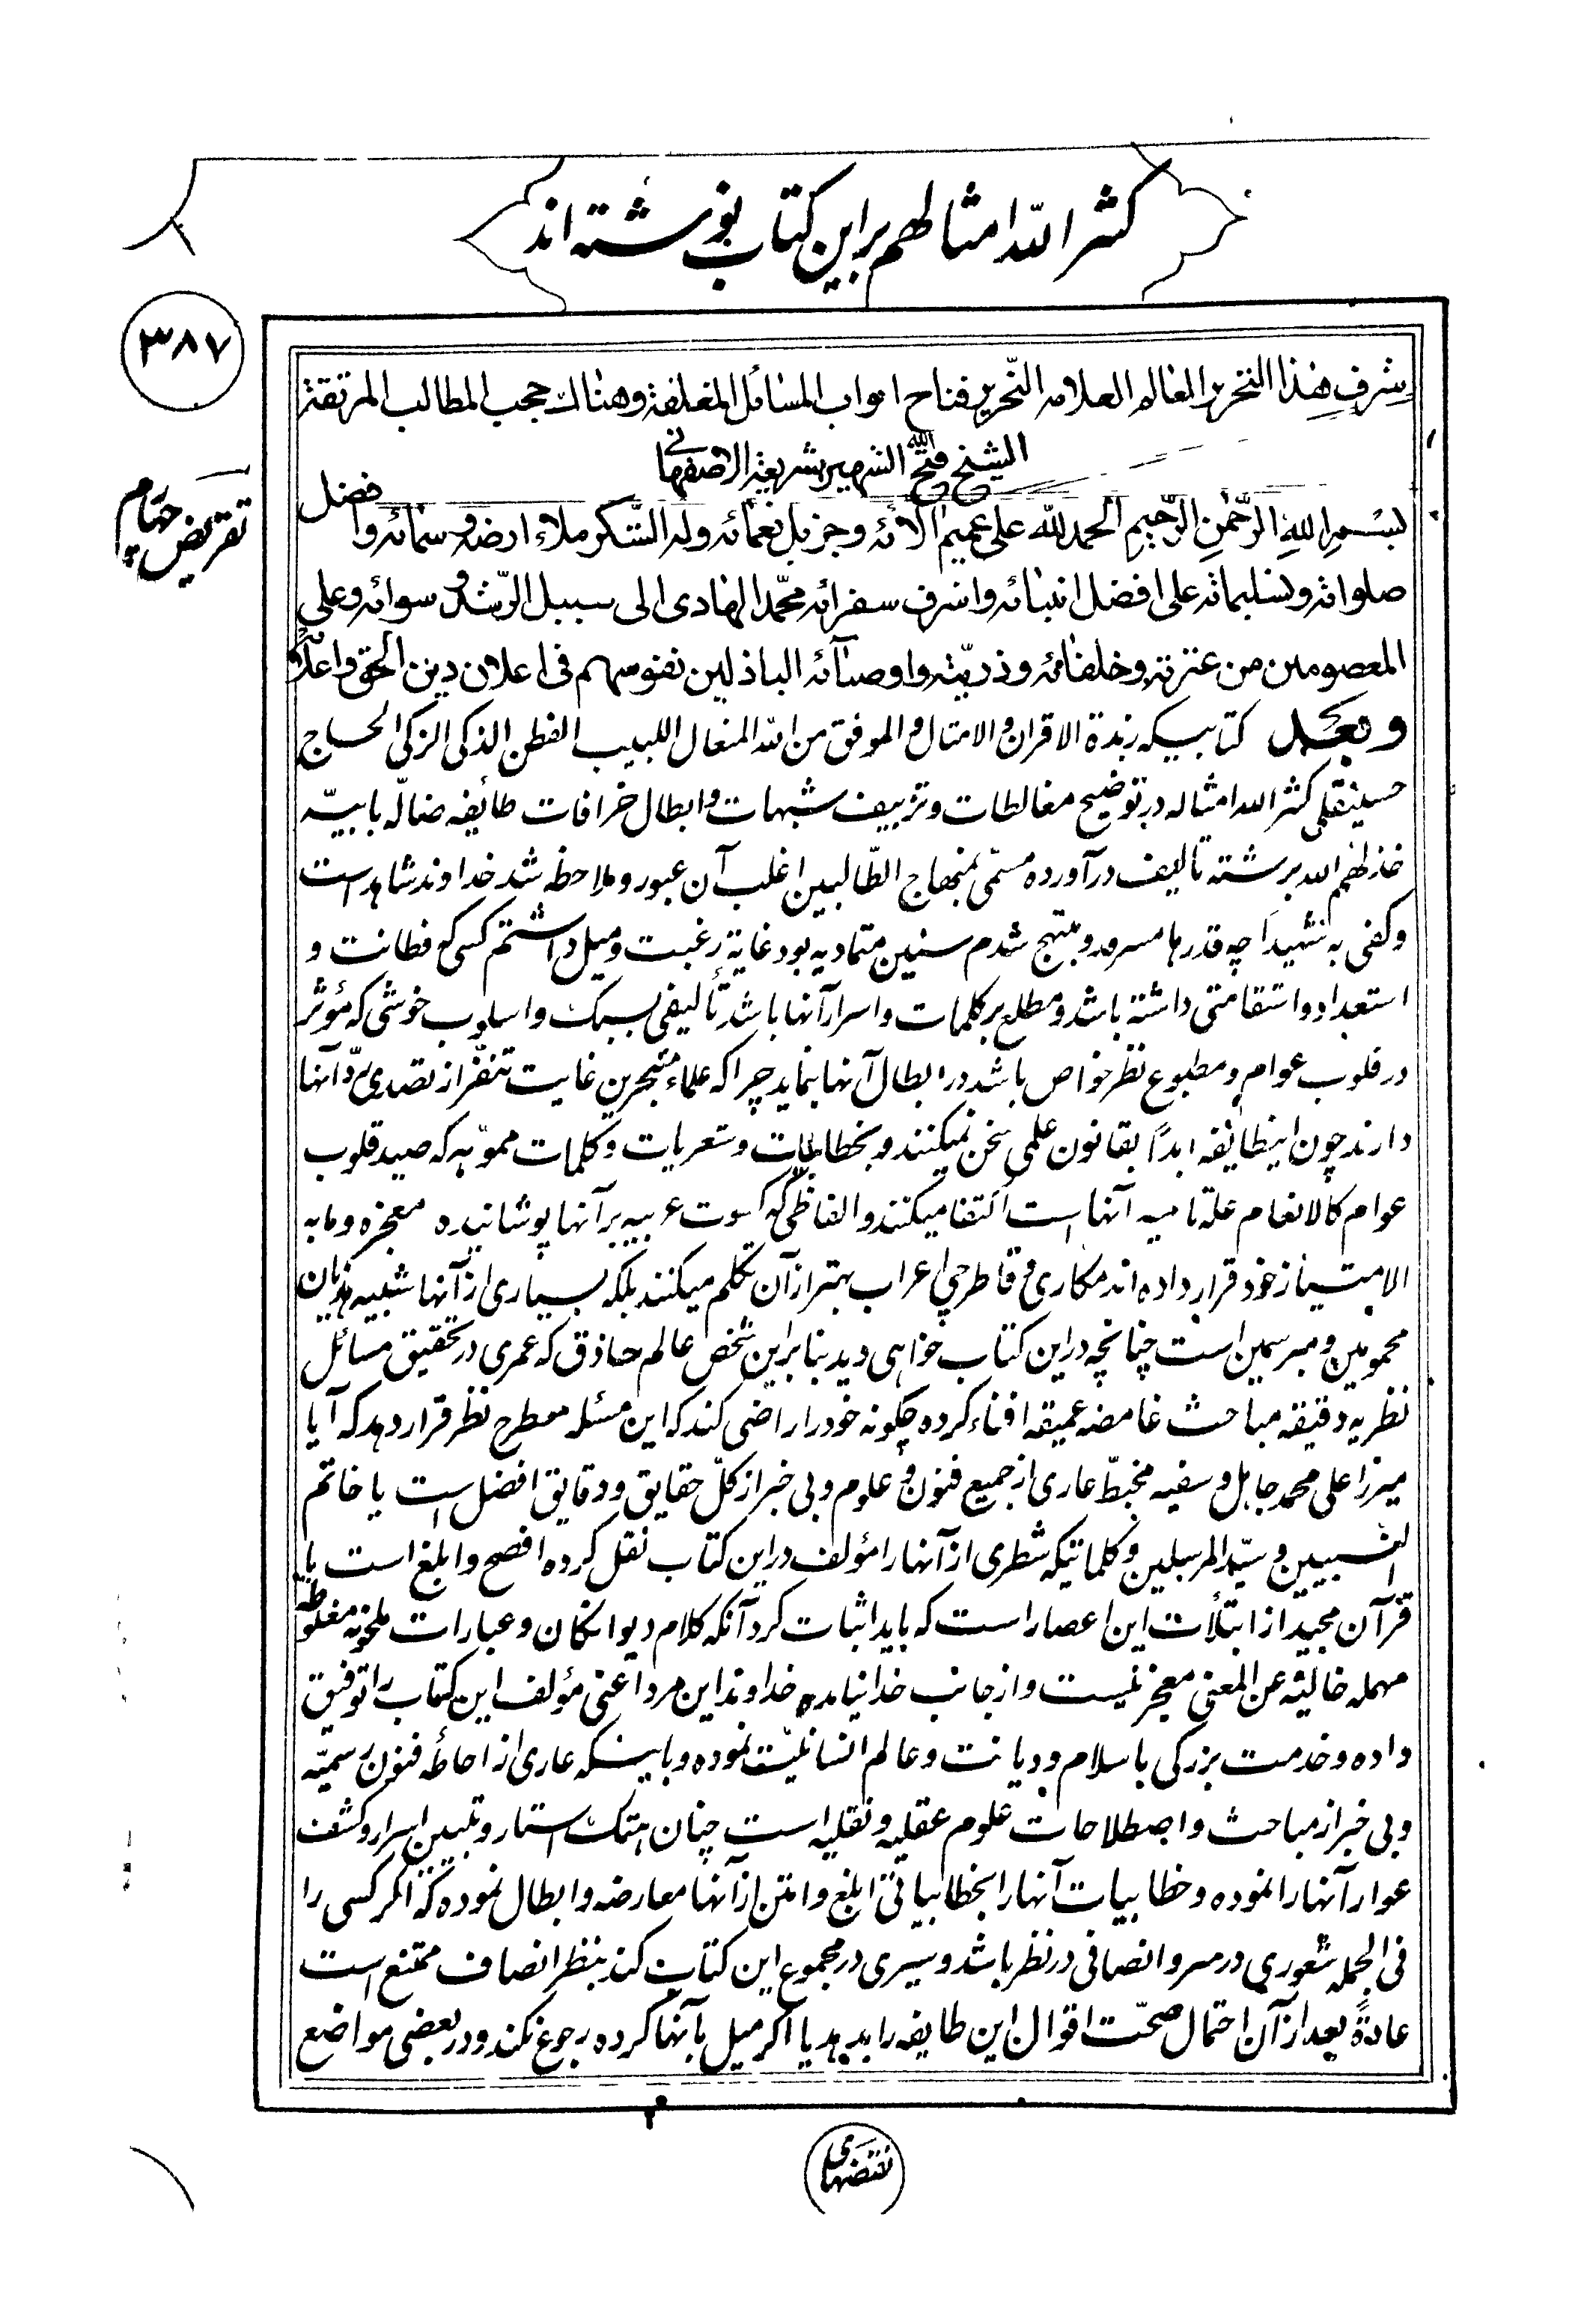 کثر الله امثالهم بر این کتاب نوشته‌اند
۳۸۷
شرف هذا التحریر العالم العلامه النحریر فتاح ابواب المسائل المغلقة وهتاك حجب المطالب المرتقة
الشیخ فتح الله الشهیر بشریعة الاصفهانی
تقریض چهارم
بسم الله الرحمن الرحیم الحمد لله علی عمیم آلائه وجزیل نعمائه وله الشکر ملاء ارضه و سمائه وافضل
صلواته وتسلیماته علی افضل انبیائه واشرف سفرائه محمد الهادی الی سبیل الرشد و سوائه وعلی
المعصومین من عترته وخلفائه وذریته واوصیائه الباذلین نفوسهم فی اعلان دین الحق واعلائه
وبعد کتابیکه زبدة الاقران و الامثال و الموفق من الله المتعال اللبیب الفطن الذکی الزکی الحاج
حسینقلی کثر الله امثاله در توضیح مغالطات وتزییف شبهات و ابطال خرافات طائفه ضاله بابیه
خذلهم الله برشته تألیف درآورده مسمی بمنهاج الطالبین اغلب آن عبور وملاحظه شد خداوند شاهد است
وکفی به شهیدا چه قدرها مسرور و مبتهج شدم سنین متمادیه بود غایة رغبت و میل داشتم کسی که فطانت و
استعداد و استقامتی داشته باشد و مطلع بر کلمات و اسرار آنها باشد تألیفی بسبک و اسلوب خوشی که مؤثر
در قلوب عوام و مطبوع نظر خواص باشد در ابطال آنها بنماید چرا که علماء متبحرین غایت تنفر از تصدی رد آنها
دارند چون اینطائفه ابداً بقانون علمی سخن نمیکنند و بخطابیات و شعریات و کلمات مموهه که صید قلوب
عوام کالانعام علة تامیه آنها است اکتفا میکنند و الفاظی که کسوت عربیه بر آنها پوشانیده معجزه و مابه
الامتیاز خود قرار داده‌اند مکاری و قاطرچی اعراب بهتر از آن تکلم میکنند بلکه بسیاری از آنها شبیه هذیان
محمومین و مبرسمین است چنانچه در این کتاب خواهی دید بنابراین شخص عالم حاذق که عمری در تحقیق مسائل
نظریه دقیقه مباحث غامضه عمیقه افناء کرده چگونه خود را راضی کند که این مسئله مطرح نظر قرار دهد که آیا
میرزا علی محمد جاهل و سفیه مخبط عاری از جمیع فنون و علوم و بی خبر از کل حقایق و دقایق افضل است یا خاتم
النبیین و سید المرسلین و کلماتیکه شطری از آنها را مؤلف در این کتاب نقل کرده افصح و ابلغ است یا
قرآن مجید از ابتلاآت این اعصار است که باید اثبات کرد آنکه کلام دیوانگان و عبارات ملحونه مغلوطه
مهمله خالیة عن المعنی معجز نیست و از جانب خدا نیامده خداوند این مرد اعنی مؤلف این کتاب را توفیق
داده و خدمت بزرگی باسلام و دیانت و عالم انسانیت نموده و با اینکه عاری از احاطه فنون رسمیه
و بی خبر از مباحث و اصطلاحات علوم عقلیه و نقلیه است چنان هتک استار و تبیین اسرار و کشف
عوار آنها را نموده و خطابیات آنها را بخطابیاتی ابلغ و امتن از آنها معارضه و ابطال نموده که اگر کسی را
فی الجمله شعوری در سر و انصافی در نظر باشد و سیری در مجموع این کتاب کند بنظر انصاف ممتنع است
عادةً بعد از آن احتمال صحت اقوال این طایفه را بدهد یا اگر میل بآنها کرده رجوع نکند و در بعضی مواضع